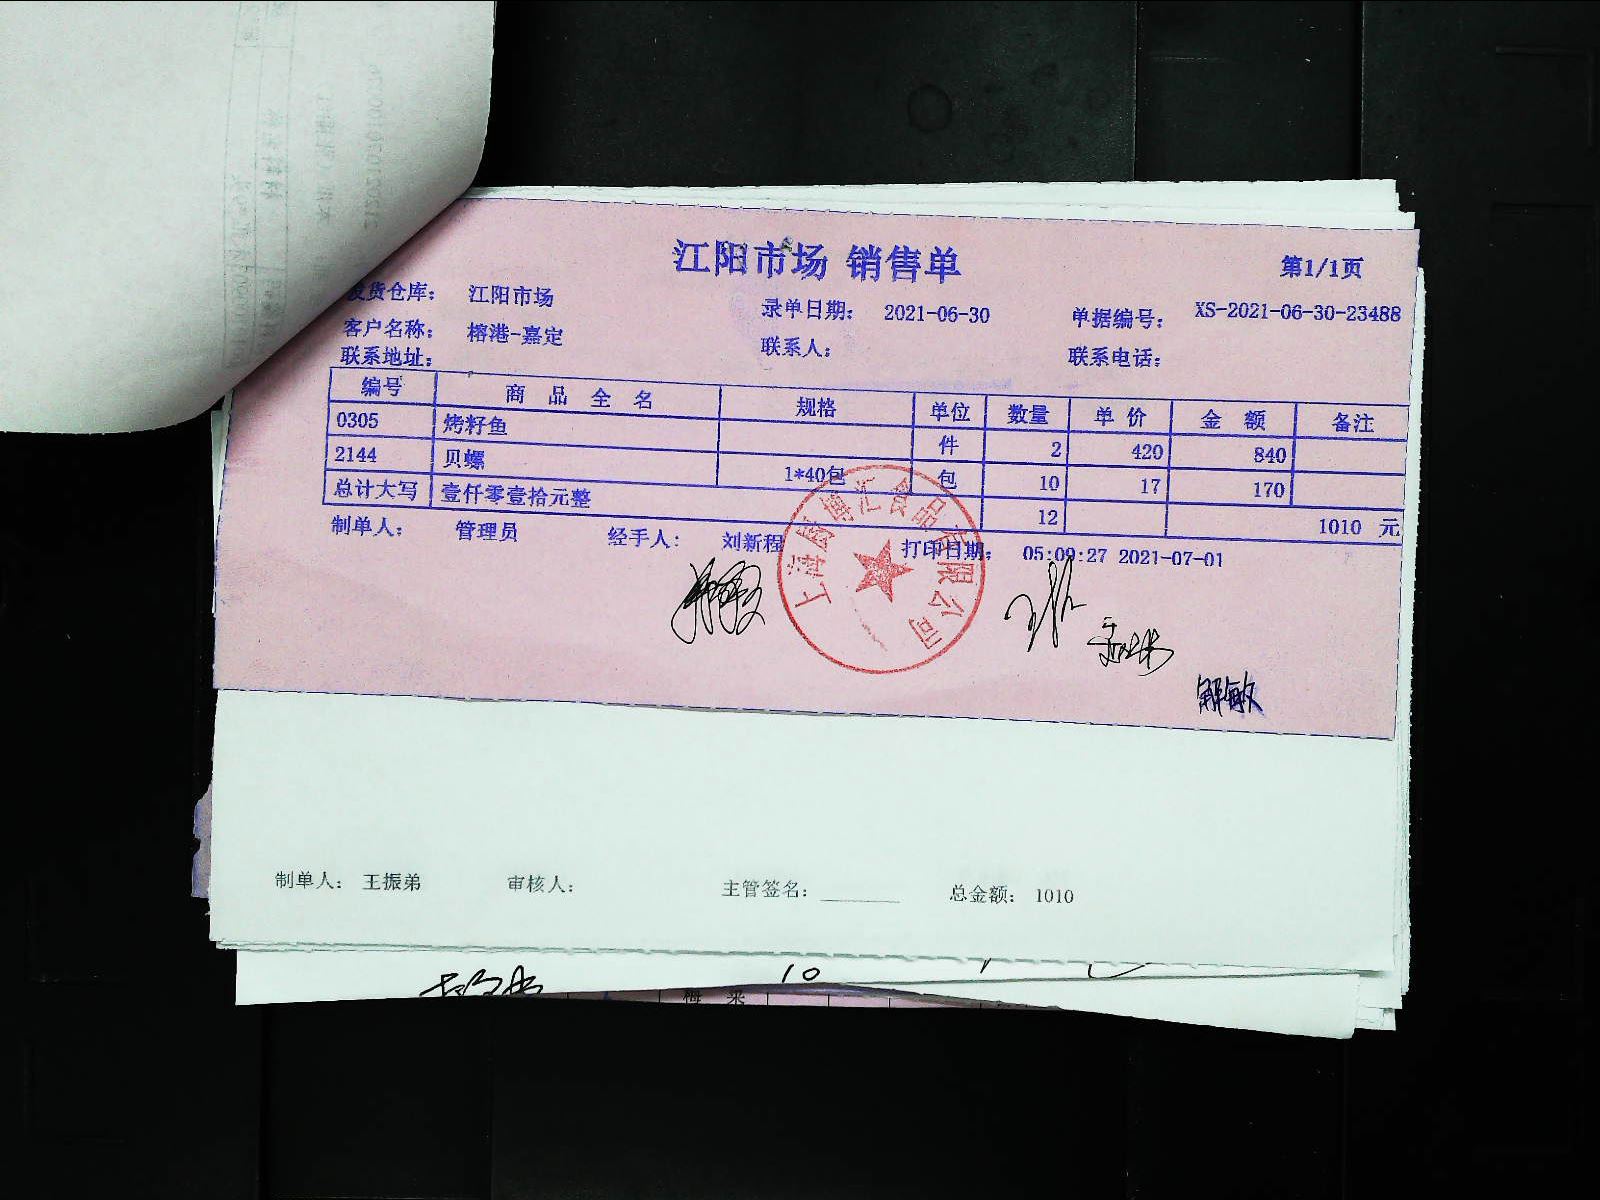 江阳市场 销售单
第1/1页
发货仓库： 江阳市场
录单日期： 2021-06-30
单据编号： XS-2021-06-30-23488
客户名称： 榕港-嘉定
联系人：
联系电话：
联系地址：
编号 商品全名 规格 单位 数量 单价 金额 备注
0305 烤籽鱼 件 2 420 840
2144 贝螺 1*40包 包 10 17 170
总计大写 壹仟零壹拾元整 12 1010 元
制单人： 管理员 经手人： 刘新程 打印日期： 05:09:27 2021-07-01
解敏
制单人： 王振弟 审核人： 主管签名： 总金额： 1010
10